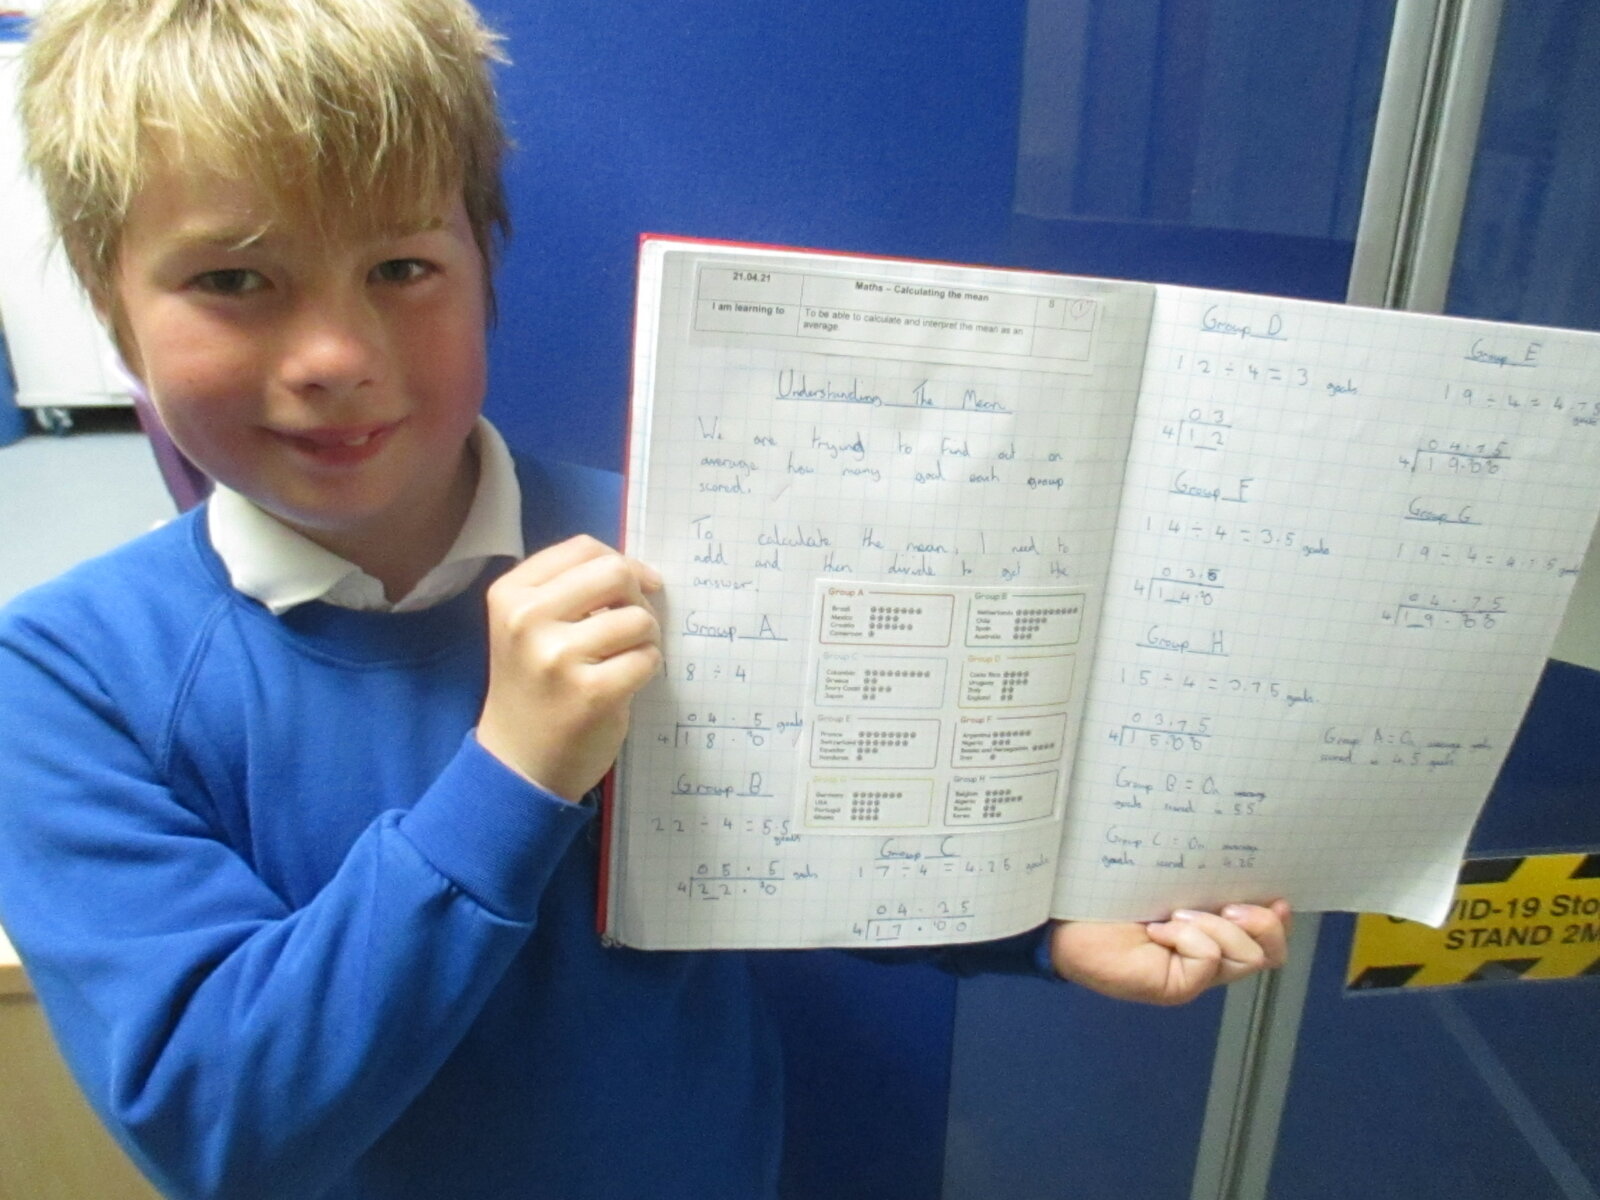 21.04.21
Maths – Calculating the mean
8
I am learning to
To be able to calculate and interpret the mean as an
average.
Understanding The Mean
We are trying to find out on
average how many goal each group
scored.
To calculate the mean, I need to
add and then divide to get the
answer.
Group A
18 ÷ 4
04.5 goals
4 18.0
Group B
22 ÷ 4 = 5.5
goals
05.5 goals
4 22.0
Group A
Brazil
Mexico
Croatia
Cameroon
Group B
Netherlands
Chile
Spain
Australia
Group C
Colombia
Greece
Ivory Coast
Japan
Group D
Costa Rica
Uruguay
Italy
England
Group E
France
Switzerland
Ecuador
Honduras
Group F
Argentina
Nigeria
Bosnia and Herzegovina
Iran
Group G
Germany
USA
Portugal
Ghana
Group H
Belgium
Algeria
Russia
Korea
Group C
17 ÷ 4 = 4.25 goals
04.25
4 17.00
Group D
12 ÷ 4 = 3 goals
03
4 12
Group E
19 ÷ 4 = 4.75
goals
04.75
4 19.00
Group F
14 ÷ 4 = 3.5 goals
03.5
4 14.0
Group G
19 ÷ 4 = 4.75 goals
04.75
4 19.00
Group H
15 ÷ 4 = 3.75 goals.
03.75
4 15.00
Group A = On average goals
scored is 4.5 goals
Group B = On average
goals scored = 5.5
Group C = On average
goals scored = 4.25
VID-19 Sto
STAND 2M